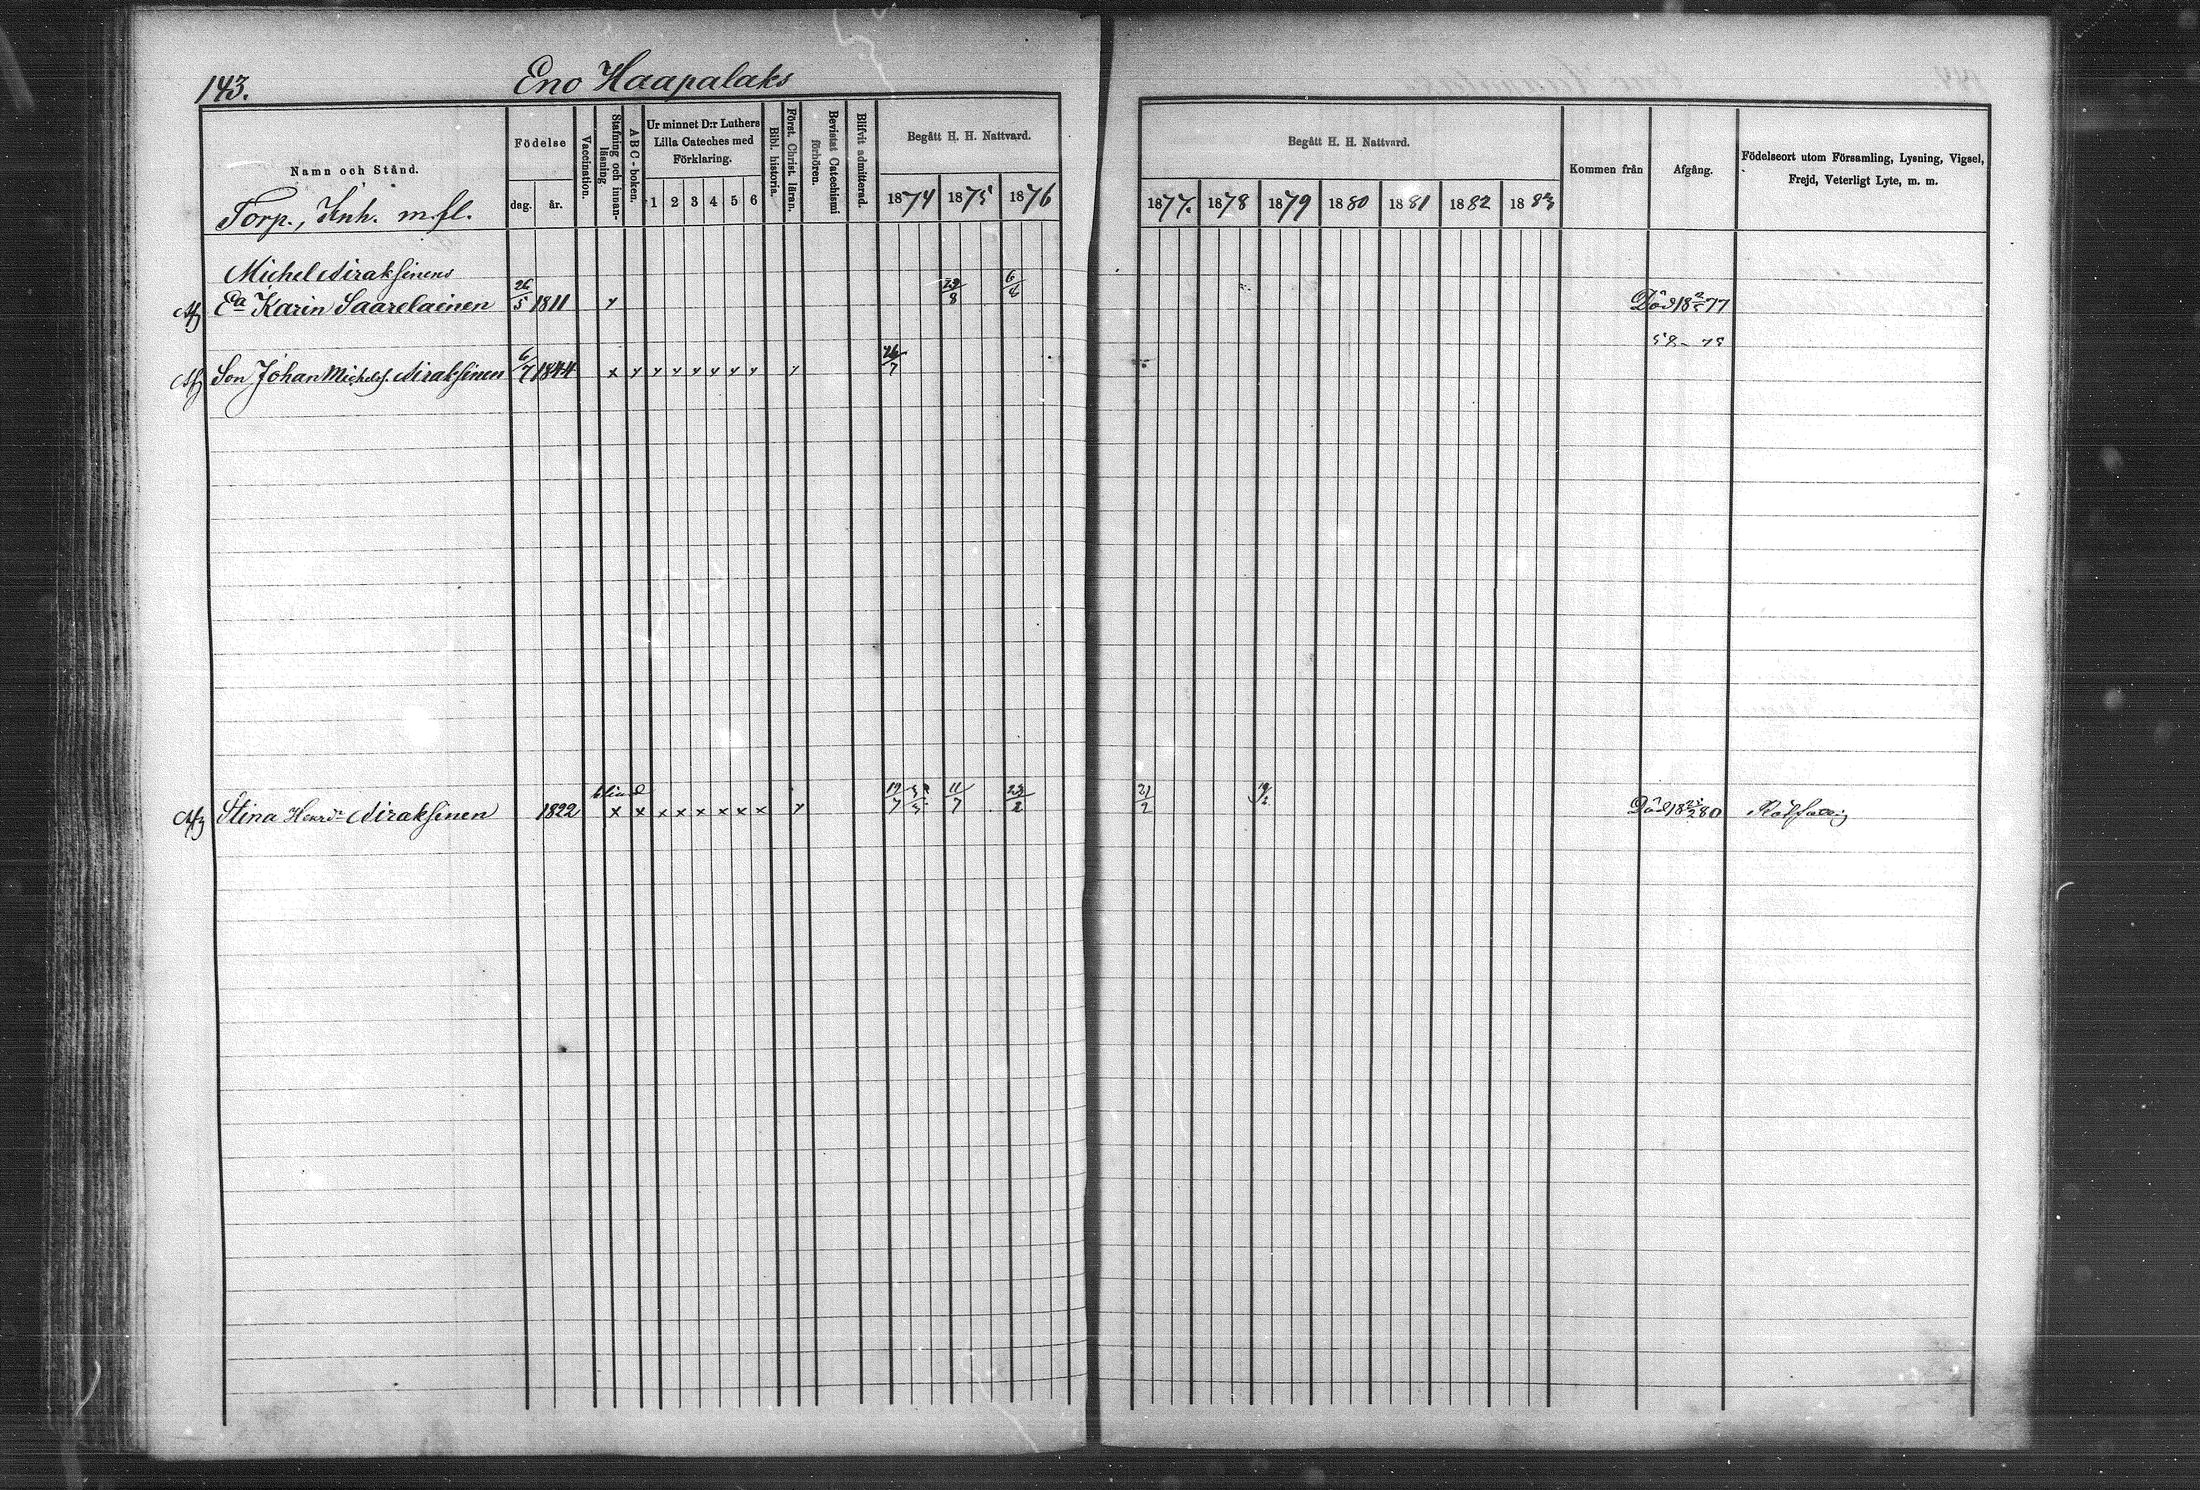 143.
Eno Haapalaks
Namn och Stånd.
Torp., Inh. m. fl.
Födelse
dag. år.
Vaccination.
Stafning och innan-läsning
ABC-boken.
Ur minnet D:r Luthers Lilla Cateches med Förklaring.
1 2 3 4 5 6
Bibl. historia.
Först. Christ. läran.
Bevistat Catechismi förhören.
Blifvit admitterad.
Begått H. H. Nattvard.
1874 1875 1876
Begått H. H. Nattvard.
1877. 1878 1879 1880 1881 1882 1883
Kommen från
Afgång.
Födelseort utom Församling, Lysning, Vigsel, Frejd, Veterligt Lyte, m. m.
Michel Airaksinens
Ea Karin Saarelainen 26/5 1811 x 29/8 6/8 Död 18 2/5 77
Son Johan Michelsf. Airaksinen 6/7 1844 x x x x x x x x x 26/7
blind
Stina Henrdr Airaksinen 1822 x x x x x x x x x 19/7 11/7 23/2 21/2 Död 18 25/2 80